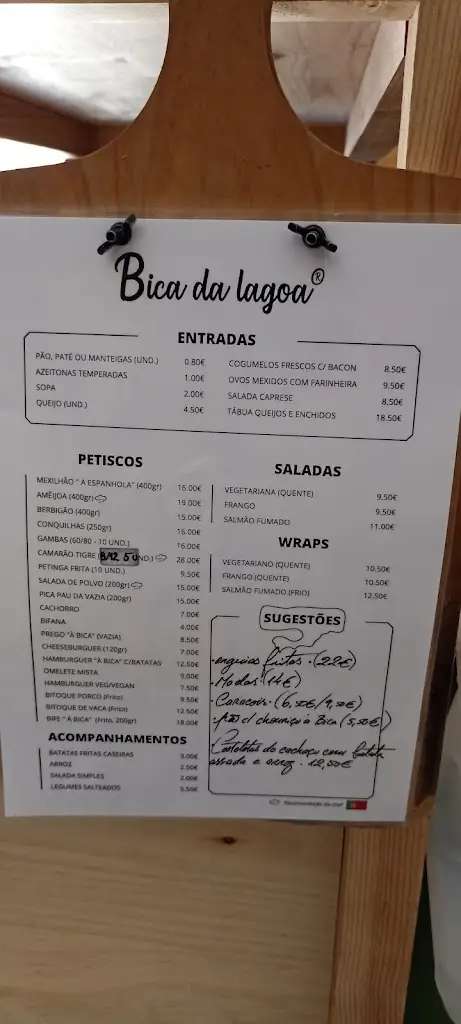 Bica da lagoa®
ENTRADAS
PÃO, PATÉ OU MANTEIGAS (UND.) 0.80€
AZEITONAS TEMPERADAS 1.00€
SOPA 2.00€
QUEIJO (UND.) 4.50€
COGUMELOS FRESCOS C/ BACON 8.50€
OVOS MEXIDOS COM FARINHEIRA 9.50€
SALADA CAPRESE 8.50€
TÁBUA QUEIJOS E ENCHIDOS 18.50€
PETISCOS
MEXILHÃO " À ESPANHOLA" (400gr) 16.00€
AMÊIJOA (400gr) 19.00€
BERBIGÃO (400gr) 15.00€
CONQUILHAS (250gr) 16.00€
GAMBAS (60/80 - 10 UND.) 16.00€
CAMARÃO TIGRE ( UND.) 28.00€
PETINGA FRITA (10 UND.) 9.50€
SALADA DE POLVO (200gr) 15.00€
PICA PAU DA VAZIA (200gr) 15.00€
CACHORRO 7.00€
BIFANA 4.00€
PREGO "À BICA" (VAZIA) 8.50€
CHEESEBURGUER (120gr) 7.00€
HAMBURGUER "À BICA" C/BATATAS 12.50€
OMELETE MISTA 9.00€
HAMBURGUER VEG/VEGAN 7.50€
BITOQUE PORCO (Frito) 9.50€
BITOQUE DE VACA (Frito) 12.50€
BIFE " À BICA" (Frito, 200gr) 18.00€
ACOMPANHAMENTOS
BATATAS FRITAS CASEIRAS 3.00€
ARROZ 2.50€
SALADA SIMPLES 2.00€
LEGUMES SALTEADOS 5.50€
SALADAS
VEGETARIANA (QUENTE) 9.50€
FRANGO 9.50€
SALMÃO FUMADO 11.00€
WRAPS
VEGETARIANO (QUENTE) 10.50€
FRANGO (QUENTE) 10.50€
SALMÃO FUMADO (FRIO) 12.50€
SUGESTÕES
enguias fritas (22€)
(14€)
Caracóis (6,50€/9,50€)
c/ chouriço à Bica (5,50€)
Costeletas de cachaço com batata
assada e arroz . 12,50€
Recomendação do chef